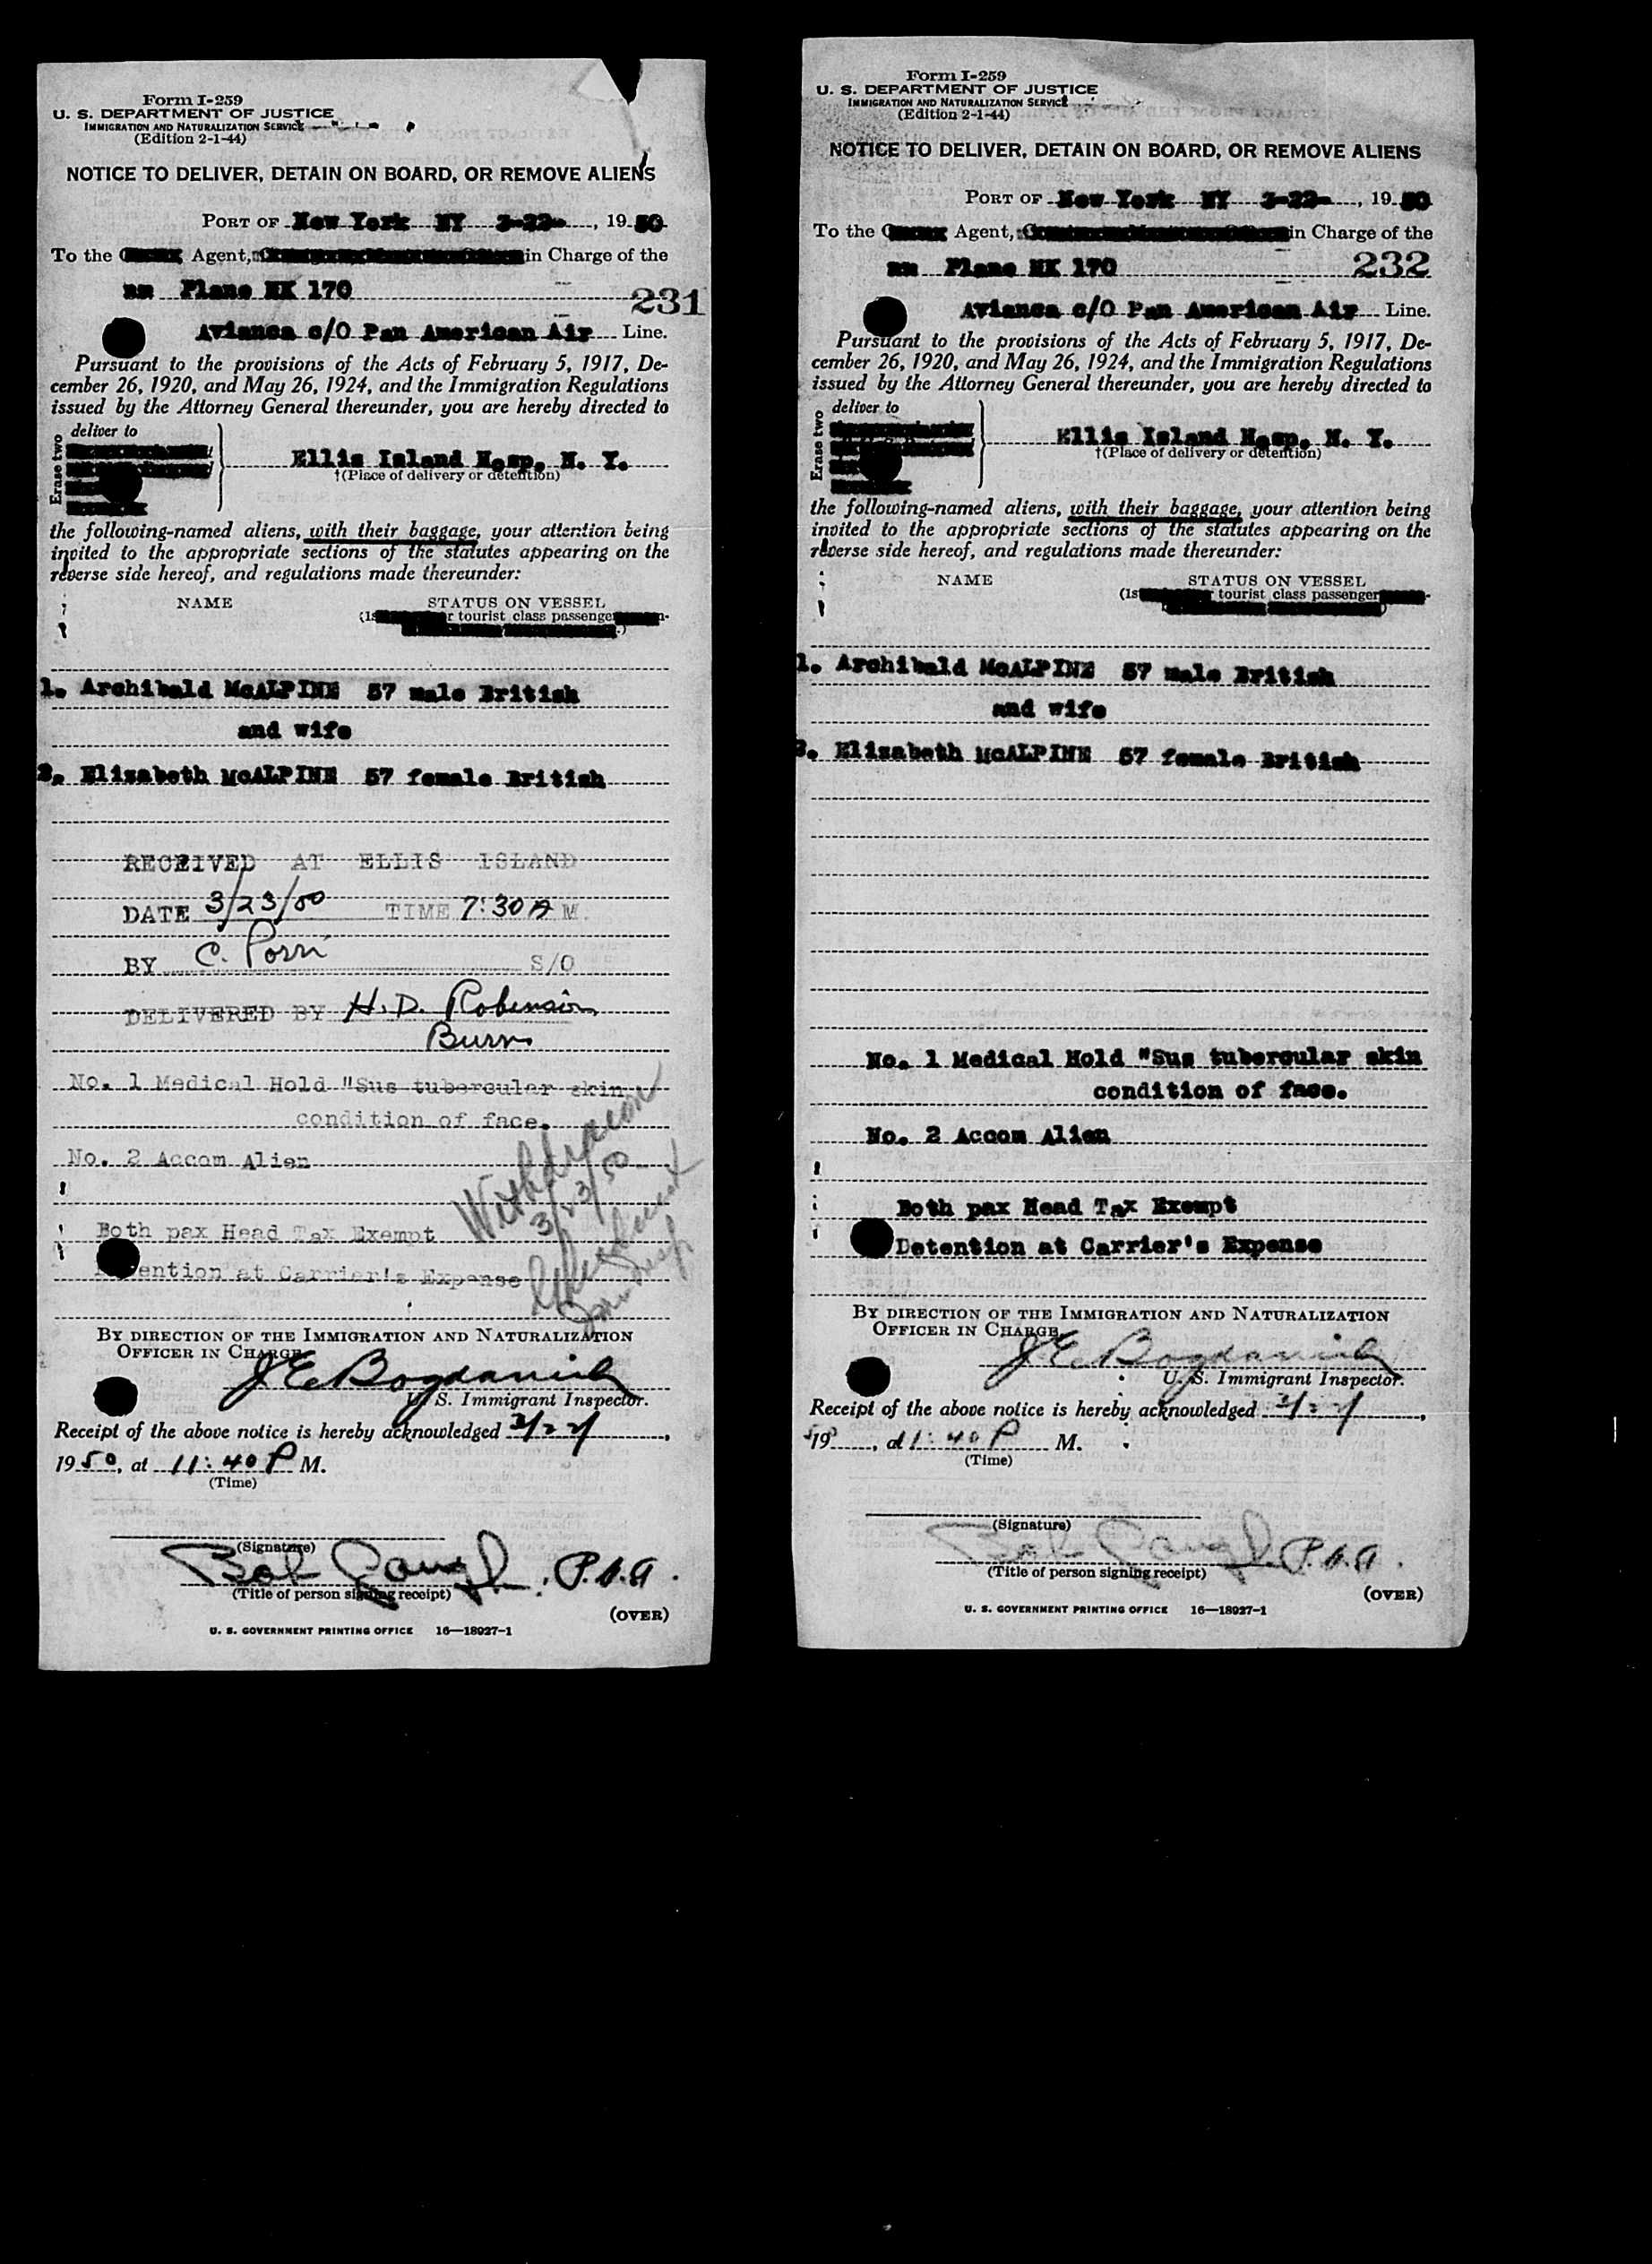 Form I-259
U. S. DEPARTMENT OF JUSTICE
IMMIGRATION AND NATURALIZATION SERVICE
(Edition 2-1-44)
NOTICE TO DELIVER, DETAIN ON BOARD, OR REMOVE ALIENS
PORT OF New York NY 3-22-, 19 50
To the Agent, in Charge of the
Plane HK 170
231
Avianca c/O Pan American Air Line.
Pursuant to the provisions of the Acts of February 5, 1917, De-
cember 26, 1920, and May 26, 1924, and the Immigration Regulations
issued by the Attorney General thereunder, you are hereby directed to
Erase two
deliver to
Ellis Island Hosp. N. Y.
†(Place of delivery or detention)
the following-named aliens, with their baggage, your attention being
invited to the appropriate sections of the statutes appearing on the
reverse side hereof, and regulations made thereunder:
NAME STATUS ON VESSEL
(1s r tourist class passenger -
.)
1. Archibald McALPINE 57 male British
and wife
2. Elizabeth McALPINE 57 female British
RECEIVED AT ELLIS ISLAND
DATE 3/23/50 TIME 7:30 A M.
BY C. Porri S/O
DELIVERED BY H. D. Robinson
Burns
No. 1 Medical Hold "Sus tubercular skin
condition of face.
No. 2 Accom Alien
Withdrawn
3/23/50
Both pax Head Tax Exempt
ention at Carrier's Expense
BY DIRECTION OF THE IMMIGRATION AND NATURALIZATION
OFFICER IN CHARGE
J E Bogdanich
U. S. Immigrant Inspector.
Receipt of the above notice is hereby acknowledged 3/22/,
1950, at 11:40 P M.
(Time)
(Signature)
Bob , P.A.A.
(Title of person signing receipt)
(OVER)
U. S. GOVERNMENT PRINTING OFFICE 16—18927-1
Form I-259
U. S. DEPARTMENT OF JUSTICE
IMMIGRATION AND NATURALIZATION SERVICE
(Edition 2-1-44)
NOTICE TO DELIVER, DETAIN ON BOARD, OR REMOVE ALIENS
PORT OF New York NY 3-22-, 19 50
To the Agent, in Charge of the
Plane HK 170 232
Avianca c/O Pan American Air Line.
Pursuant to the provisions of the Acts of February 5, 1917, De-
cember 26, 1920, and May 26, 1924, and the Immigration Regulations
issued by the Attorney General thereunder, you are hereby directed to
Erase two
deliver to
Ellis Island Hosp. N. Y.
†(Place of delivery or detention)
the following-named aliens, with their baggage, your attention being
invited to the appropriate sections of the statutes appearing on the
reverse side hereof, and regulations made thereunder:
NAME STATUS ON VESSEL
(1s r tourist class passenger -
)
1. Archibald McALPINE 57 male British
and wife
2. Elizabeth McALPINE 57 female British
No. 1 Medical Hold "Sus tubercular skin
condition of face.
No. 2 Accom Alien
Both pax Head Tax Exempt
Detention at Carrier's Expense
BY DIRECTION OF THE IMMIGRATION AND NATURALIZATION
OFFICER IN CHARGE
J E Bogdanich
U. S. Immigrant Inspector.
Receipt of the above notice is hereby acknowledged 3/22/,
19 , at 1:40 P M.
(Time)
(Signature)
Bob P.A.A.
(Title of person signing receipt)
(OVER)
U. S. GOVERNMENT PRINTING OFFICE 16—18927-1